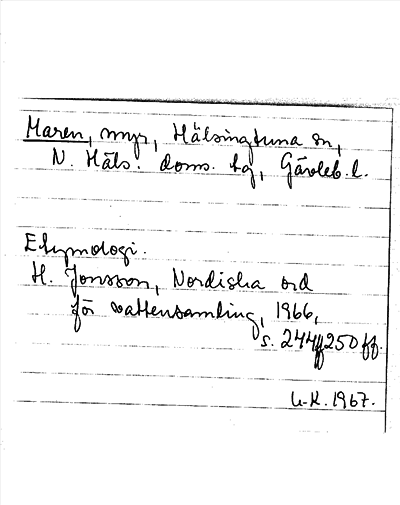 Maren, myr, Hälsingtuna sn,
N. Häls. doms. tg, Gävleb. l.
Etymologi.
H. Jonsson, Nordiska ord
för vattensamling, 1966,
s. 244ff, 250 ff.
U-K. 1967.